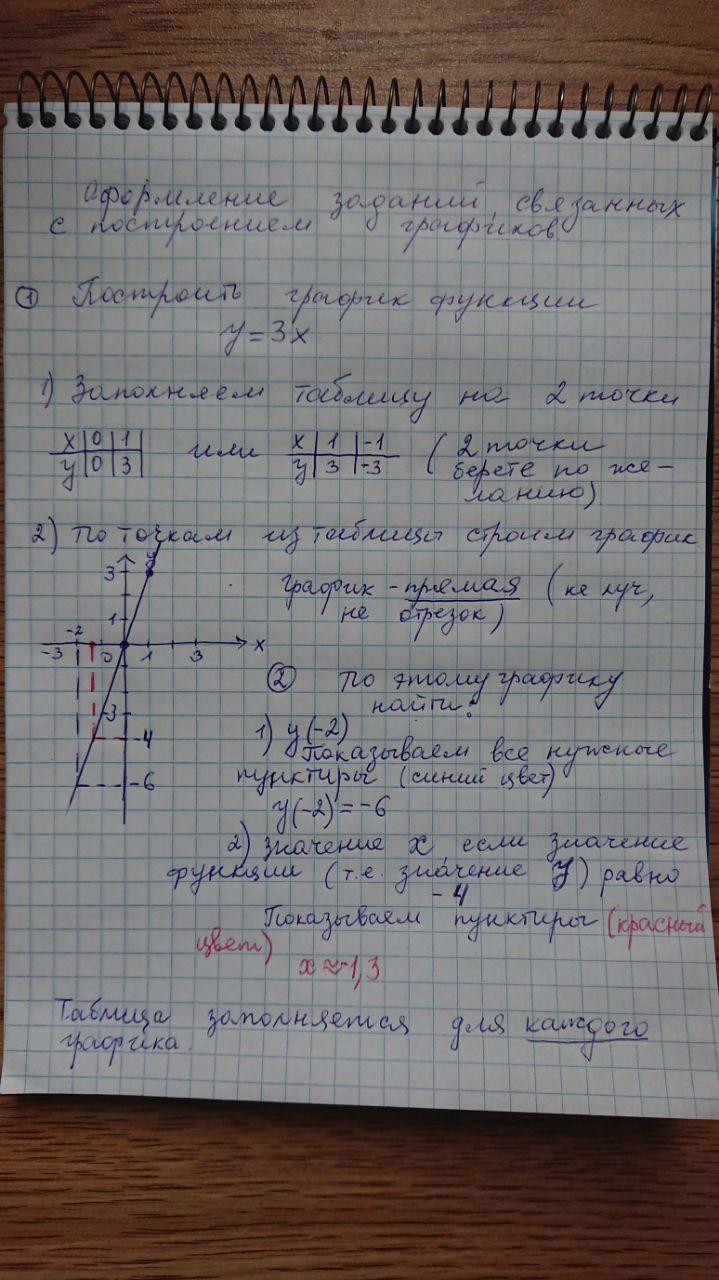 Оформление заданий, связанных
с построением графиков
① Построить график функции
y=3x
1) Заполняем таблицу на 2 точки
x 0 1 или x 1 -1 (2 точки
y 0 3 y 3 -3 берете по же-
ланию)
2) По точкам из таблицы строим график
y
3
1
-3 -2 0 1 3 x
-3
-4
-6
График - прямая (не луч,
не отрезок)
② По этому графику
найти:
1) y(-2)
Показываем все нужные
пунктиры (синий цвет)
y(-2)=-6
2) значение x если значение
функции (т.е. значение y) равно
-4
Показываем пунктиры (красный
цвет)
x≈-1,3
Таблица заполняется для каждого
графика.